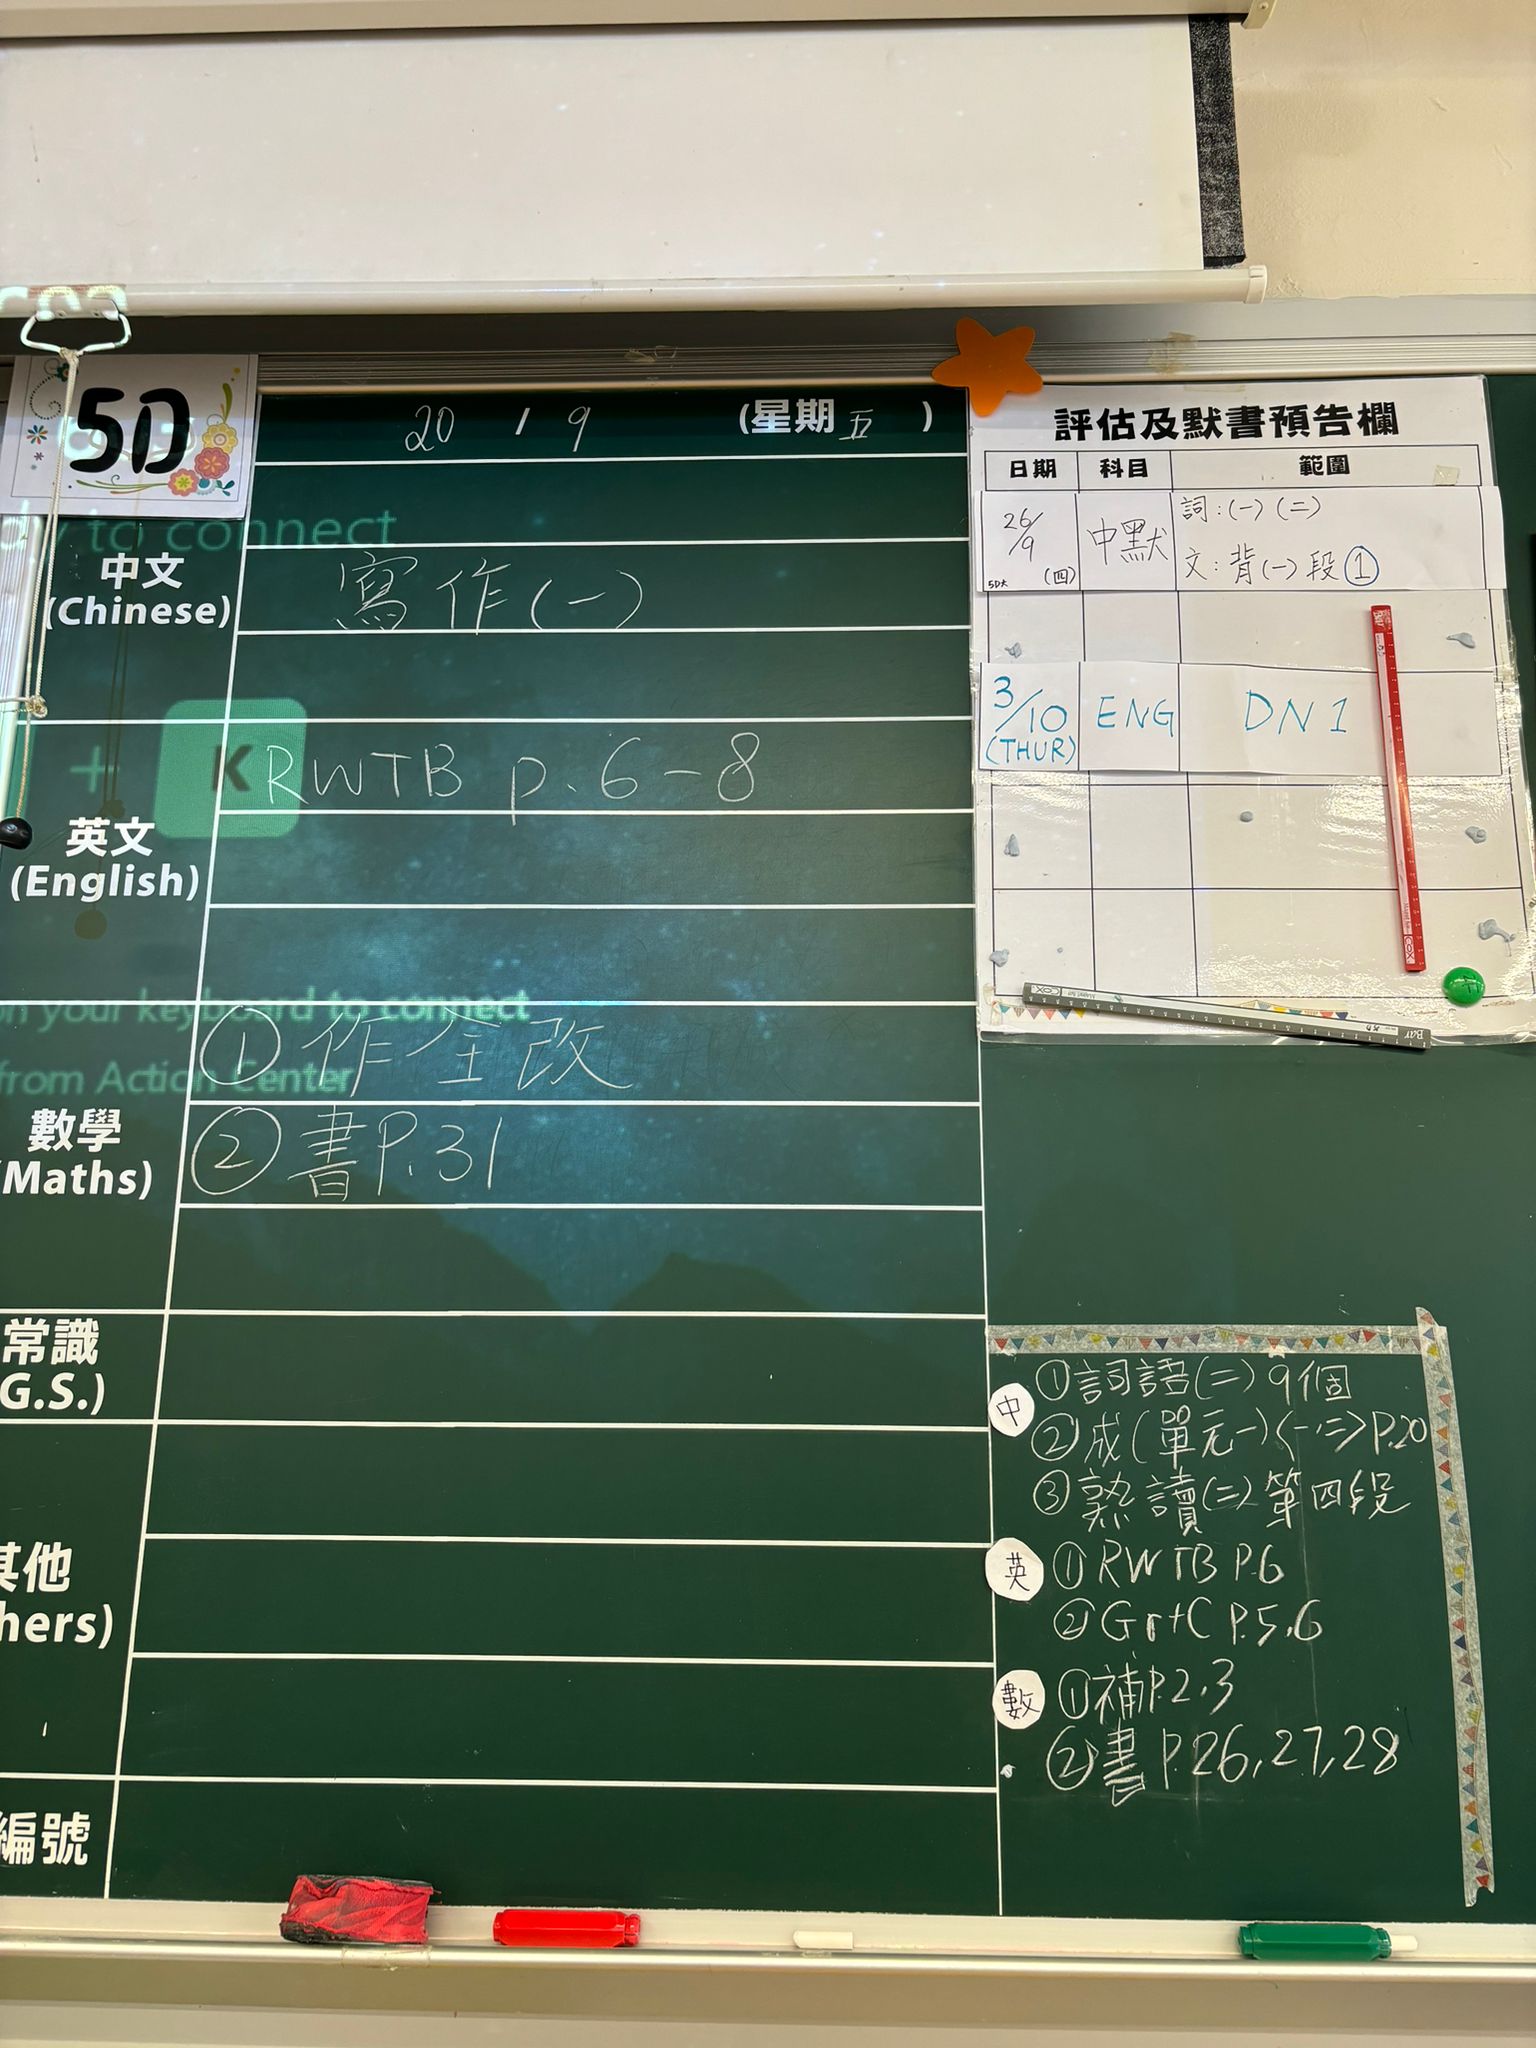 5D
20 / 9 (星期五)
y to connect
中文
(Chinese)
寫作(一)
+ K
RWTB p.6-8
英文
(English)
on your keyboard to connect
from Action Center
數學
(Maths)
①作全改
②書P.31
常識
G.S.)
其他
hers)
編號
評估及默書預告欄
日期 科目 範圍
26/9 (四) 5D大 中默 詞:(一)(二)
文:背(一)段①
3/10 (THUR) ENG DN1
中 ①詞語(二)9個
②成(單元一)<一,二>P.20
③熟讀(二)第四段
英 ①RWTB P.6
②Gr+C P.5,6
數 ①補P.2,3
②書P.26,27,28